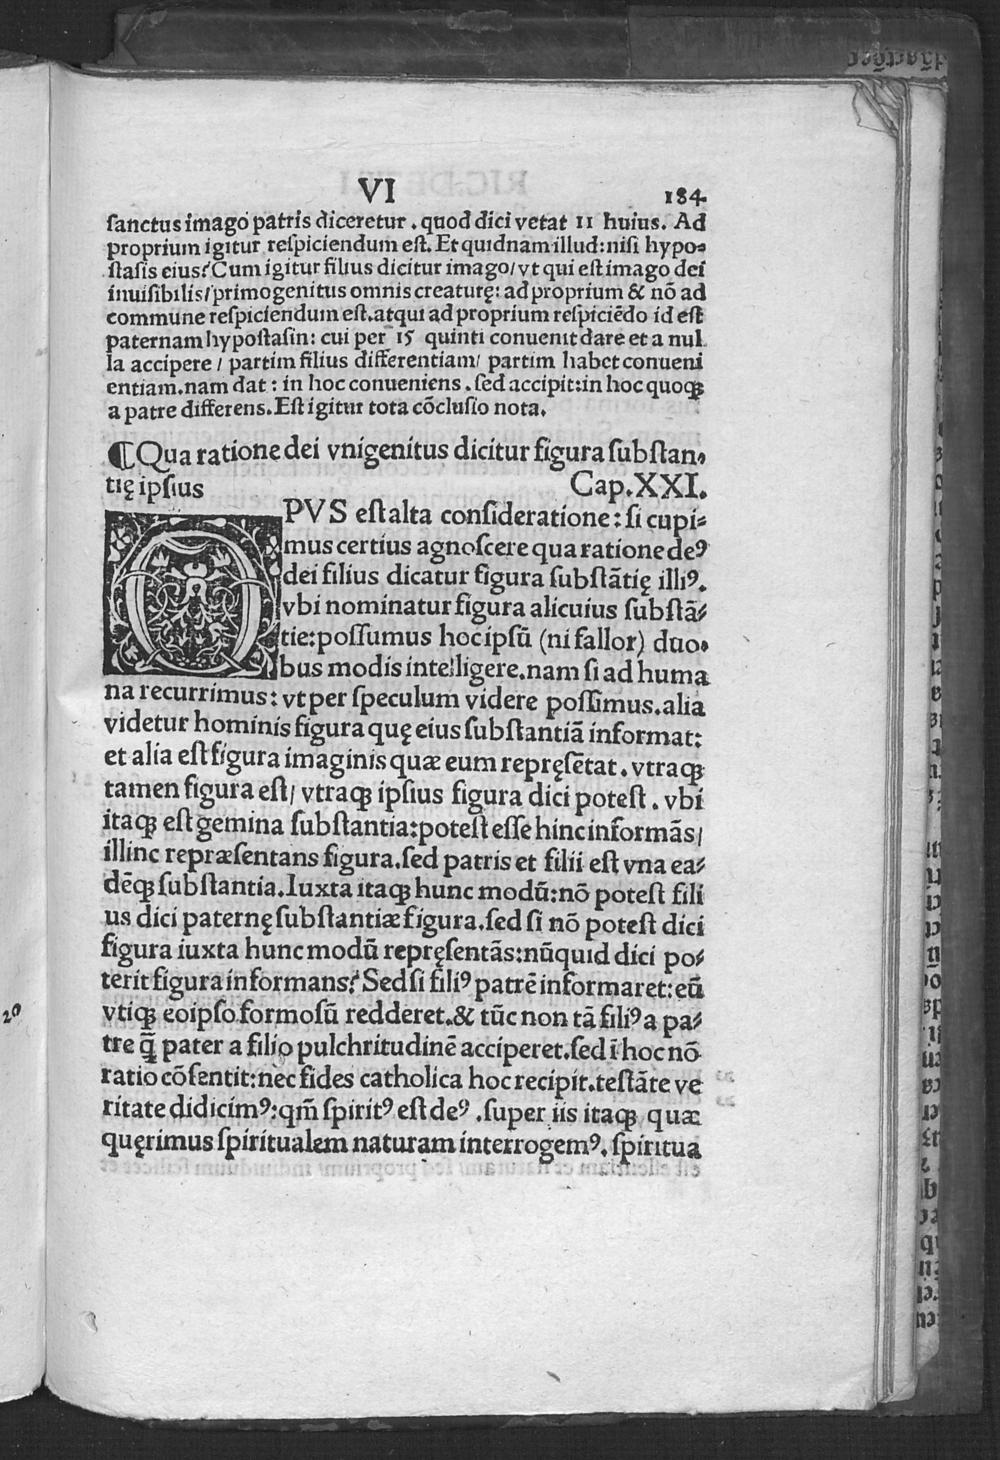 VI 184.
sanctus imago patris diceretur. quod dici vetat 11 huius. Ad
proprium igitur respiciendum est. Et quidnam illud: nisi hypo-
stasis eius? Cum igitur filius dicitur imago/ vt qui est imago dei
inuisibilis/ primogenitus omnis creaturę: ad proprium & nõ ad
commune respiciendum est. atqui ad proprium respiciẽdo id est
paternam hypostasin: cui per 15 quinti conuenit dare et a nul
la accipere / partim filius differentiam/ partim habet conueni
entiam. nam dat: in hoc conueniens. sed accipit: in hoc quoqꝫ
a patre differens. Est igitur tota cõclusio nota.
¶Qua ratione dei vnigenitus dicitur figura substan-
tię ipsius Cap. XXI.
OPVS est alta consideratione: si cupi-
mus certius agnoscere qua ratione deꝰ
dei filius dicatur figura substãtię illiꝰ.
vbi nominatur figura alicuius substã-
tie: possumus hoc ipsũ (ni fallor) duo-
bus modis intelligere. nam si ad huma
na recurrimus: vt per speculum videre possimus. alia
videtur hominis figura quę eius substantiã informat:
et alia est figura imaginis quæ eum repręsẽtat. vtraqꝫ
tamen figura est/ vtraqꝫ ipsius figura dici potest. vbi
itaqꝫ est gemina substantia: potest esse hinc informãs/
illinc repræsentans figura. sed patris et filii est vna ea-
dẽqꝫ substantia. Iuxta itaqꝫ hunc modũ: nõ potest fili
us dici paternę substantiæ figura. sed si nõ potest dici
figura iuxta hunc modũ repręsentãs: nũquid dici po-
terit figura informans? Sed si filiꝰ patrẽ informaret: eũ
vtiqꝫ eoipso formosũ redderet. & tũc non tã filiꝰ a pa-
tre q̃ pater a filio pulchritudinẽ acciperet. sed ĩ hoc nõ
ratio cõsentit: nec fides catholica hoc recipit. testãte ve
ritate didicimꝰ: qm̃ spiritꝰ est deꝰ. super iis itaqꝫ quæ
quęrimus spiritualem naturam interrogemꝰ. spiritua
20